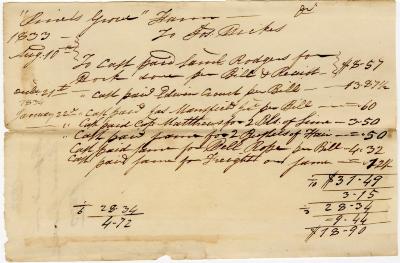 "Grove" Farm — Dr
1833 — To Jos
Aug. 10th To Cash paid Saml Rodgers for
Work done per Bill & Receipt — $8-57
21st " Cash paid Edwin per Bill — 13.87½
1834
January 22nd " Cash paid Jas Mansfield per Bill — " 60
" Cash paid Capt Matthews for 2 Bls of Lime — 3.50
" Cash paid same for 2 Bushels of Hair — " 50
Cash paid same for Bell Rope per Bill — 4.32
Cash paid same for Freight on same —
$31-49
1/10 3-15
1/3 28-34
9-44
$18-90
1/6 28-34
4-72